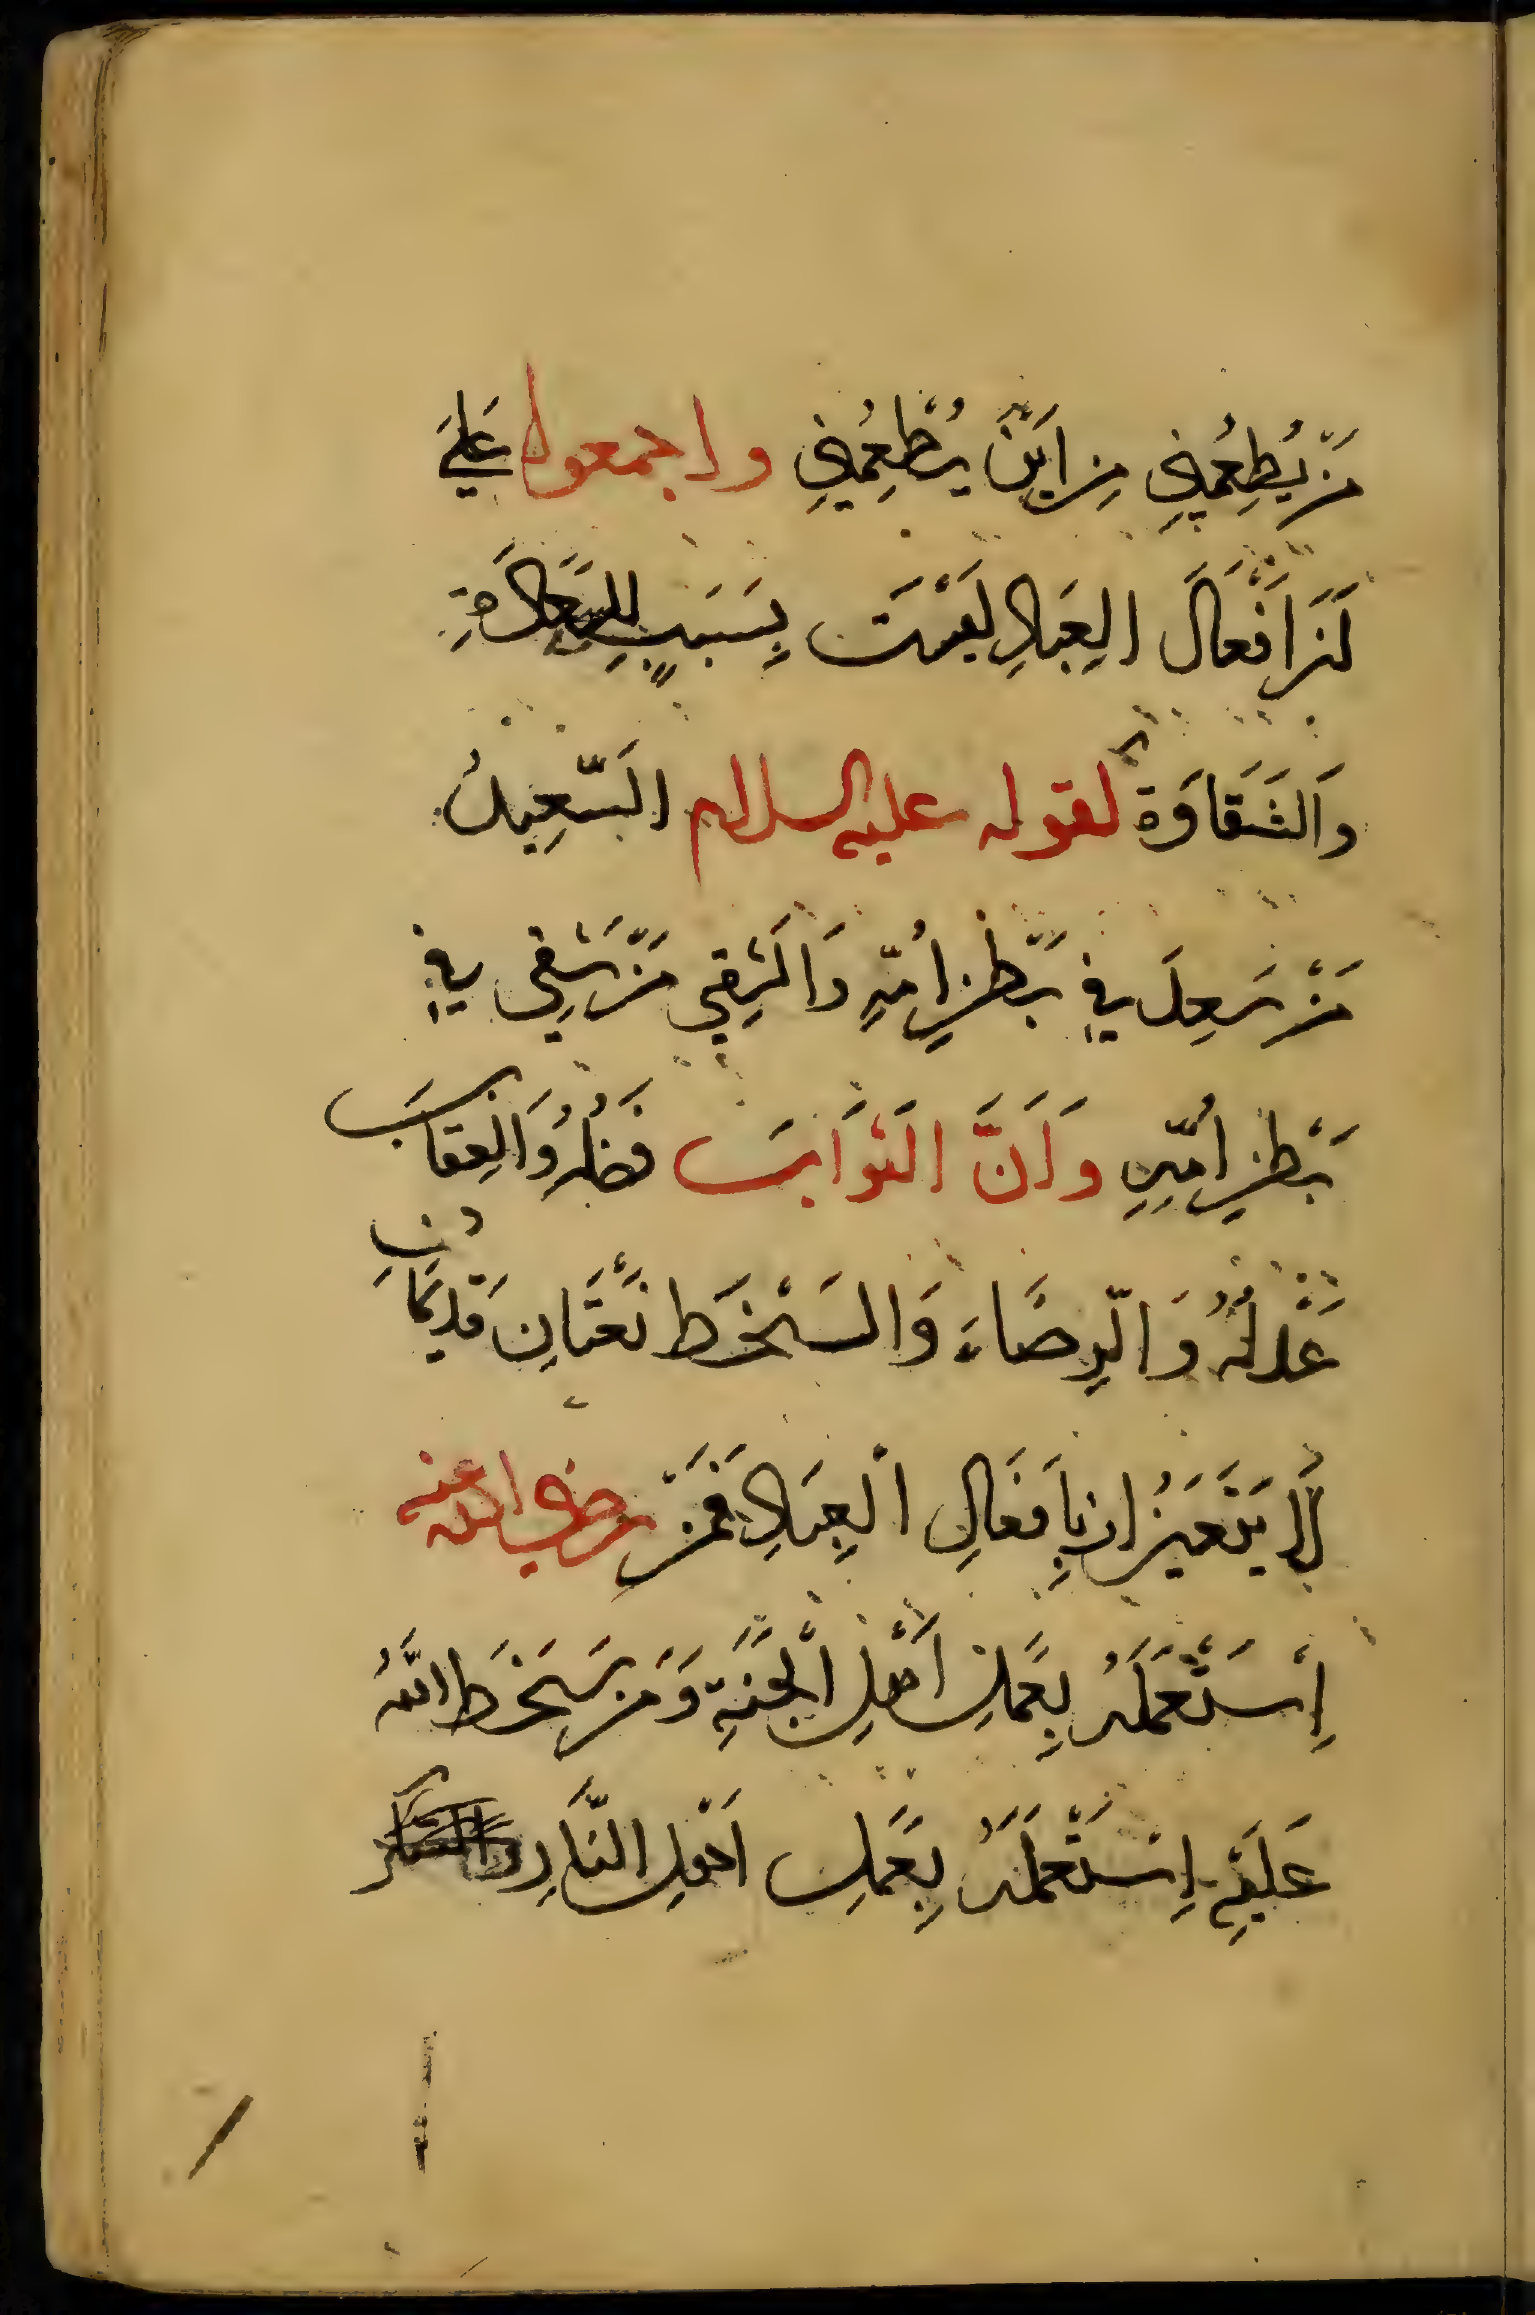 مَنْ يُطْعِمُنِي مِنْ اَيْنَ يُطْعِمُنِي واجمعوا عَلَى
اَنَّ اَفْعَالَ العِبَادِ لَيْسَتْ بِسَبَبٍ لِلسَّعَادَةِ
وَالشَّقَاوَةِ لقوله عليه السلام السَّعِيدُ
مَنْ سَعِدَ فِي بَطْنِ اُمِّهِ وَالشَّقِي مَنْ شَقِي فِي
بَطْنِ اُمِّهِ وَاَنَّ الثَوَابَ فَضْلُهُ وَالعِقَابَ
عَدْلُهُ وَالرِّضَاءَ وَالسَخَطَ نَعْتَانِ قَدِيمَانِ
لَا يَتَغَيَّرَانِ بِاَفْعَالِ الْعِبَادِ فَمَنْ رضي الله عنه
اِسْتَعْمَلَهُ بِعَمَلِ اَهْلِ الْجَنَّةِ وَمَنْ سَخَطَ اللهُ
عَلَيْهِ اِسْتَعْمَلَهُ بِعَمَلِ اَهْلِ النَّارِ